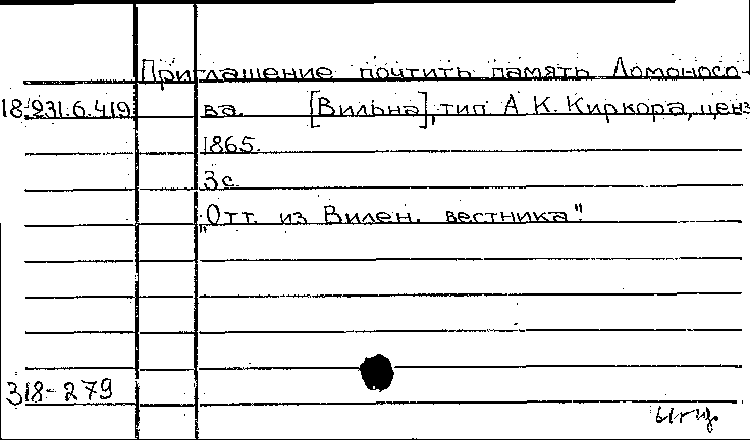 Приглашение почтить память Ломоносо-
18.231.6.419 ва. [Вильна], тип А К. Киркора, ценз
1865.
3с.
"Отт. из Вилен. вестника".
318-279